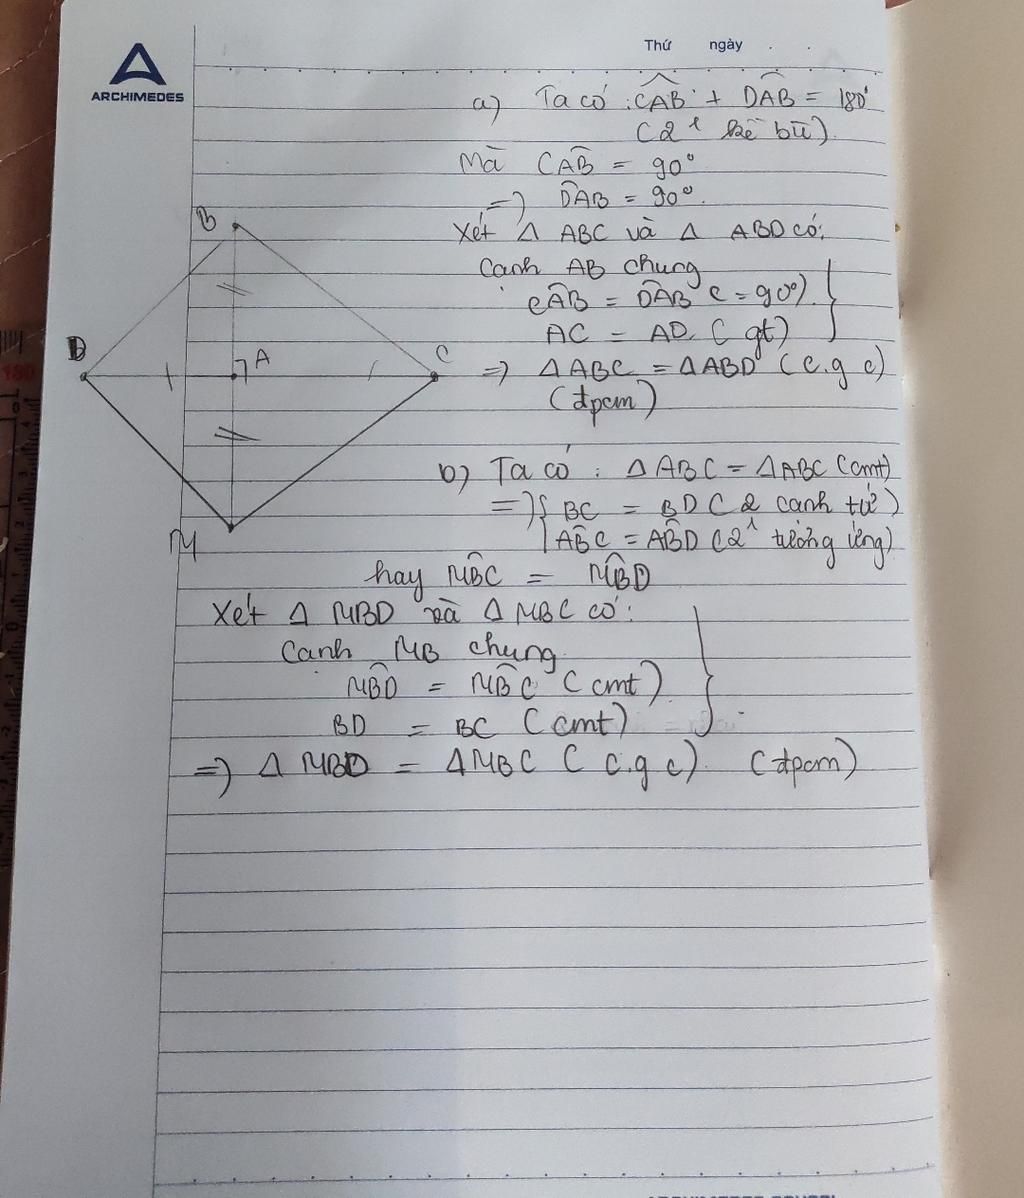 Thứ ngày
ARCHIMEDES
a) Ta có : CAB + DAB = 180°
(2 kề bù).
Mà CAB = 90°
=> DAB = 90°.
Xét Δ ABC và Δ ABD có:
Cạnh AB chung
CAB = DAB (= 90°)
AC = AD. (gt)
=> ΔABC = ΔABD (c.g c)
(đpcm)
B
D
A
C
M
b) Ta có : ΔABC = ΔABC (cmt)
=> { BC = BD (2 cạnh tứ)
ABC = ABD (2 tương ứng)
hay MBC = MBD
Xét Δ MBD và Δ MBC có:
Cạnh MB chung
MBD = MBC (cmt)
BD = BC (cmt)
=> Δ MBD = ΔMBC (c.g c) (đpcm)